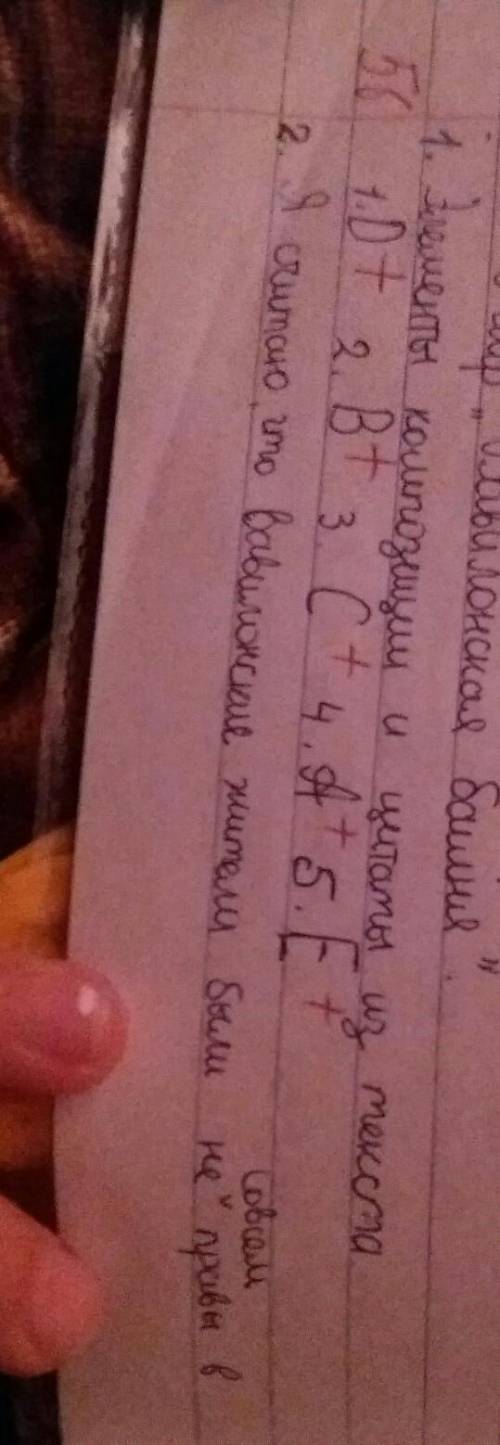 „Вавилонская башня".
1. Элементы композиции и цитаты из текста
5б 1. D + 2. B + 3. C + 4. A + 5. E +
2. Я считаю, что вавилонские жители были не совсем правы в